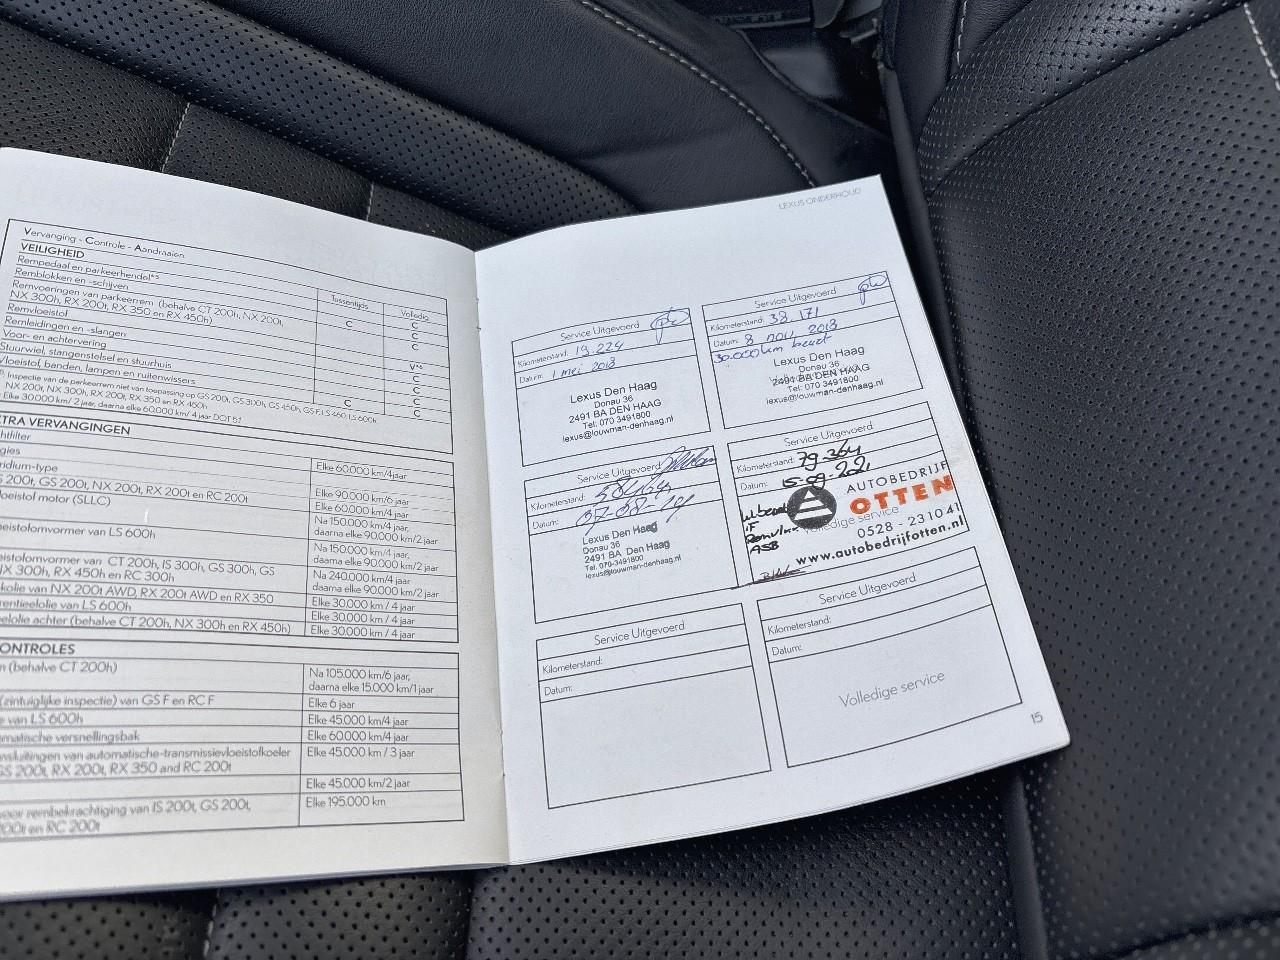 Vervanging - Controle - Aandraaien
VEILIGHEID
Tussentijds
Volledig
Rempedaal en parkeerhendel*⁵
C
C
Remblokken en -schijven
C
Remvoeringen van parkeerrem (behalve CT 200h, NX 200t,
NX 300h, RX 200t, RX 350 en RX 450h)
C
Remvloeistof
V*⁶
Remleidingen en -slangen
C
Voor- en achtervering
C
Stuurwiel, stangenstelsel en stuurhuis
C
Vloeistof, banden, lampen en ruitenwissers
C
C
Inspectie van de parkeerrem niet van toepassing op GS 200t, GS 300h, GS 450h, GS F, LS 460, LS 600h
NX 200t, NX 300h, RX 200t, RX 350 en RX 450h
Elke 30.000 km/ 2 jaar, daarna elke 60.000 km/ 4 jaar DOT 5.1
TRA VERVANGINGEN
htfilter
Elke 60.000 km/4jaar
gies
ridium-type
Elke 90.000 km/6 jaar
S 200t, GS 200t, NX 200t, RX 200t en RC 200t
Elke 60.000 km/4 jaar
loeistof motor (SLLC)
Na 150.000 km/4 jaar
daarna elke 90.000 km/2 jaar
eistofomvormer van LS 600h
Na 150.000 km/4 jaar,
daarna elke 90.000 km/2 jaar
eistofomvormer van CT 200h, IS 300h, GS 300h, GS
X 300h, RX 450h en RC 300h
Na 240.000 km/4 jaar
daarna elke 90.000 km/2 jaar
kolie van NX 200t AWD, RX 200t AWD en RX 350
Elke 30.000 km / 4 jaar
rentieelolie van LS 600h
Elke 30.000 km / 4 jaar
eelolie achter (behalve CT 200h, NX 300h en RX 450h)
Elke 30.000 km / 4 jaar
ONTROLES
n (behalve CT 200h)
Na 105.000 km/6 jaar,
daarna elke 15.000 km/1 jaar
(zintuiglijke inspectie) van GS F en RC F
Elke 6 jaar
e van LS 600h
Elke 45.000 km/4 jaar
matische versnellingsbak
Elke 60.000 km/4 jaar
nsluitingen van automatische-transmissievloeistofkoeler
GS 200t, RX 200t, RX 350 and RC 200t
Elke 45.000 km / 3 jaar
Elke 45.000 km/2 jaar
oor rembekrachtiging van IS 200t, GS 200t,
200t en RC 200t
Elke 195.000 km
LEXUS ONDERHOUD
Service Uitgevoerd
Kilometerstand: 19.224
Datum: 1 mei 2018
Lexus Den Haag
Donau 36
2491 BA DEN HAAG
Tel: 070 3491800
lexus@louwman-denhaag.nl
Service Uitgevoerd
Kilometerstand: 38.171
Datum: 8 nov 2018
30.000km beurt
Lexus Den Haag
Donau 36
2491 BA DEN HAAG
Tel: 070 3491800
lexus@louwman-denhaag.nl
Service Uitgevoerd
Kilometerstand:
Datum: 07-08-19
Lexus Den Haag
Donau 36
2491 BA Den Haag
Tel. 070-3491800
lexus@louwman-denhaag.nl
Service Uitgevoerd
Kilometerstand: 79.364
Datum: 15-09-2021
AUTOBEDRIJF
OTTEN
Volledige service
0528 - 231041
www.autobedrijfotten.nl
Service Uitgevoerd
Kilometerstand:
Datum:
Service Uitgevoerd
Kilometerstand:
Datum:
Volledige service
15